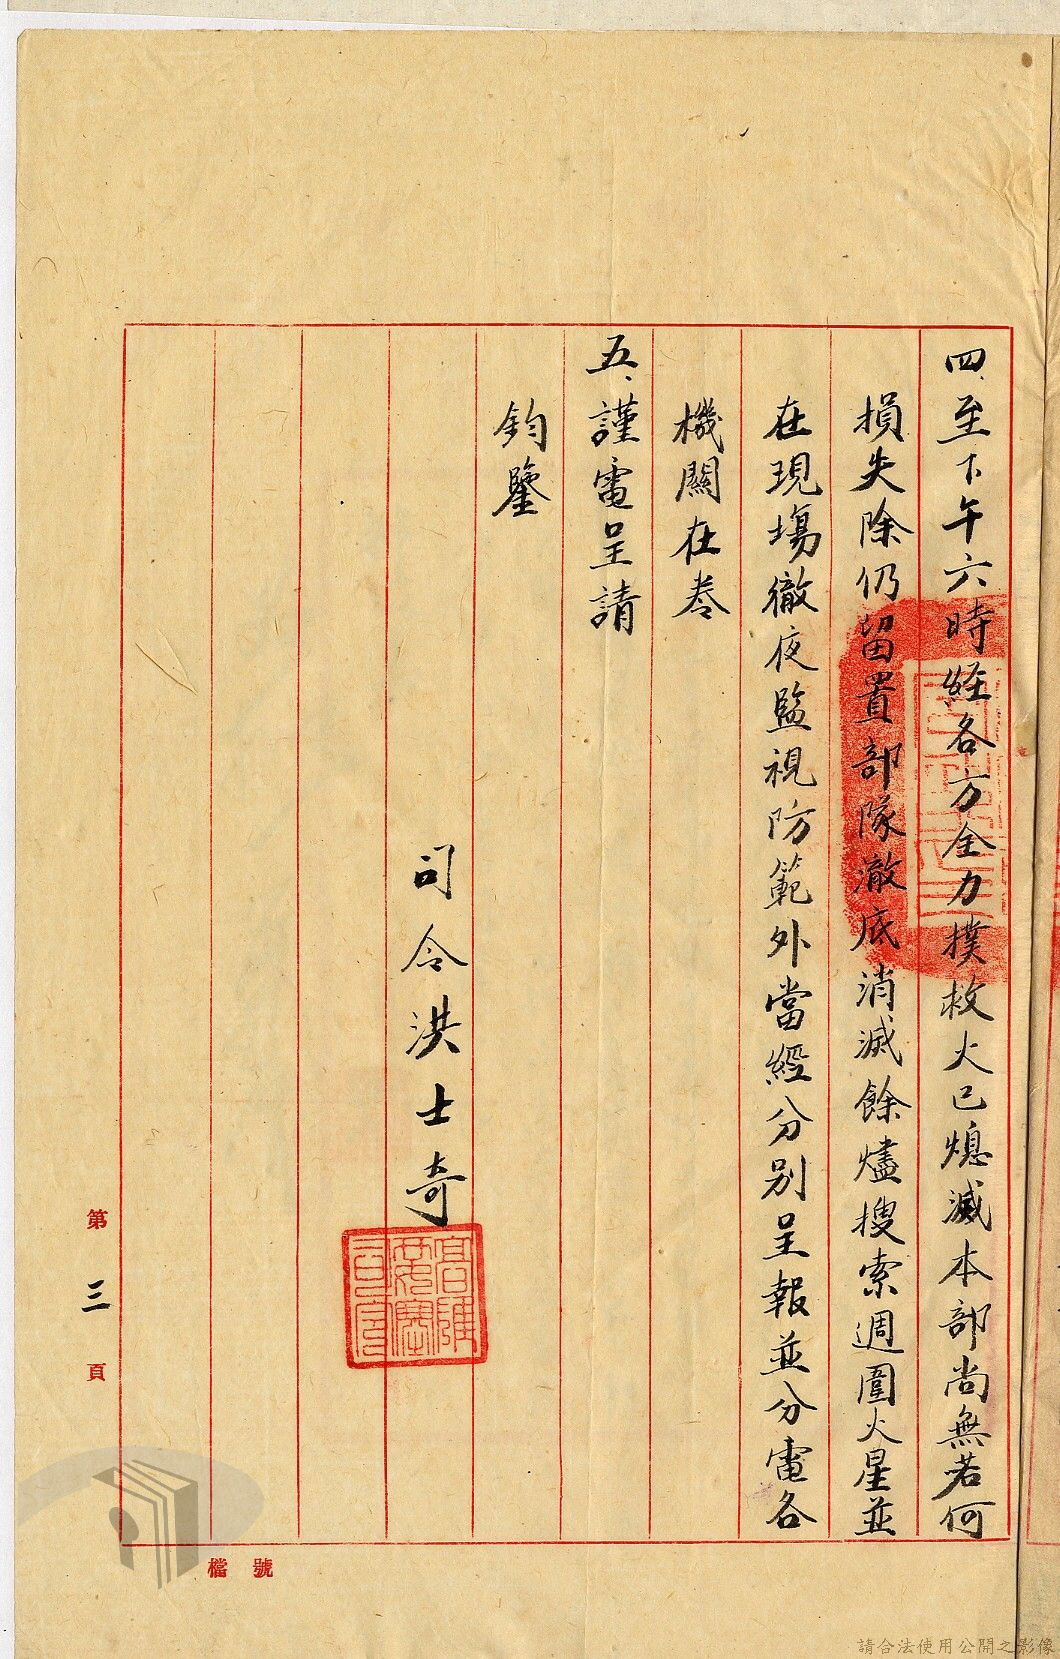 四、至下午六時経各方全力撲救火已熄滅本部尚無若何
損失除仍留置部隊澈底消滅餘燼搜索週圍火星並
在現場徹夜監視防範外當經分別呈報並分電各
機關在卷
五、謹電呈請
鈞鑒
司令洪士奇
第三頁
檔號
請合法使用公開之影像